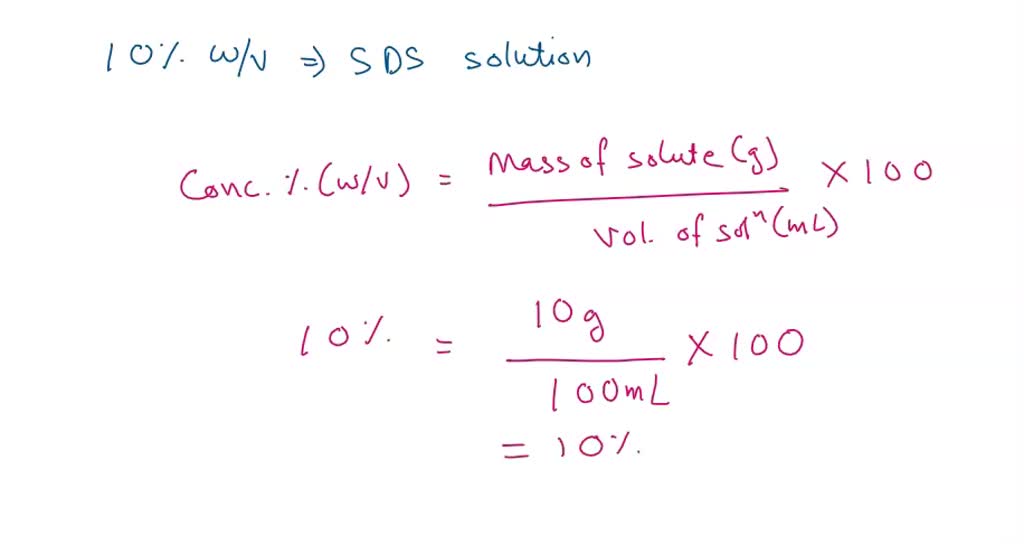 10% w/v ⇒ SDS solution
Conc. %(w/v) = Mass of solute (g) / Vol. of solⁿ (mL) × 100
10% = 10g / 100mL × 100
= 10%